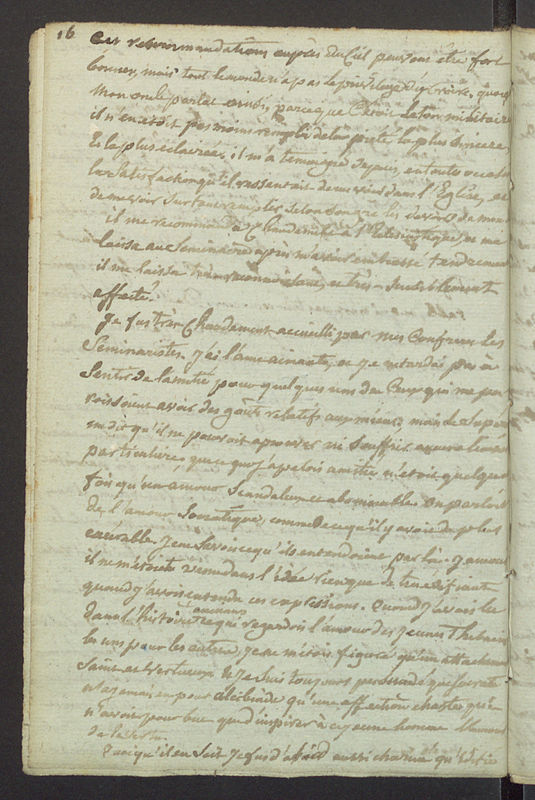 16
Ces recommandations auprès du Ciel peuvent être fort
bonnes, mais tout le monde n'a pas le privilège d'y croire, quoique
Mon oncle parlat ainsi, parceque C'étoit le ton militaire
il n'en étoit pas moins rempli de la piété la plus sincère,
Et la plus éclairée, il m'a temoigné depuis, en toute occasion
la Satisfaction qu'il ressentait de me voir dans l'Eglise, et
de me voir Surtout remplir selon Son gré les devoirs de mon
il me recommanda Chaudement à et me
laissa au Seminaire après m'avoir embrassé tendrement
il me laissa et très Sensiblement
affecté.
Je fus très Chaudement accueilli par mes Confreres les
Seminaristes. J'ai l'ame aimante, et je ne tardai pas à
Sentir de l'amitié pour quelques uns de Ceux qui me pa
roissoient avoir des goûts relatifs aux miens, mais le Superieur
me dit qu'il ne pouvoit aprouver ni Souffrir aucune liaison
particuliere, que ce que j'apelois amitié n'étoit quelque
fois qu'un amour Scandaleux et abominable. On parloit
de l'amour Socratique, comme de ce qu'il y avoit de plus
execrable. Je ne Savois ce qu'ils entendoient par là. Jamais
il ne m'étoit venu dans l'idée rien que de très edifiant
quand j'avois entendu ces expressions. Quand j'avois lu
dans l'histoire ancienne ce qui regardoit l'amour des jeunes Thebains
les uns pour les autres, je ne m'étois figuré qu'un attachement
Saint et vertueux. Je Suis toujours persuadé que Socrate
n'a jamais eu pour alcibiade qu'une affection chaste, qu'il
n'avoit pour but que d'inspirer à ce jeune homme l'amour
de la vertu.
Quoiqu'il en Soit je fus d'abord aussi charmé